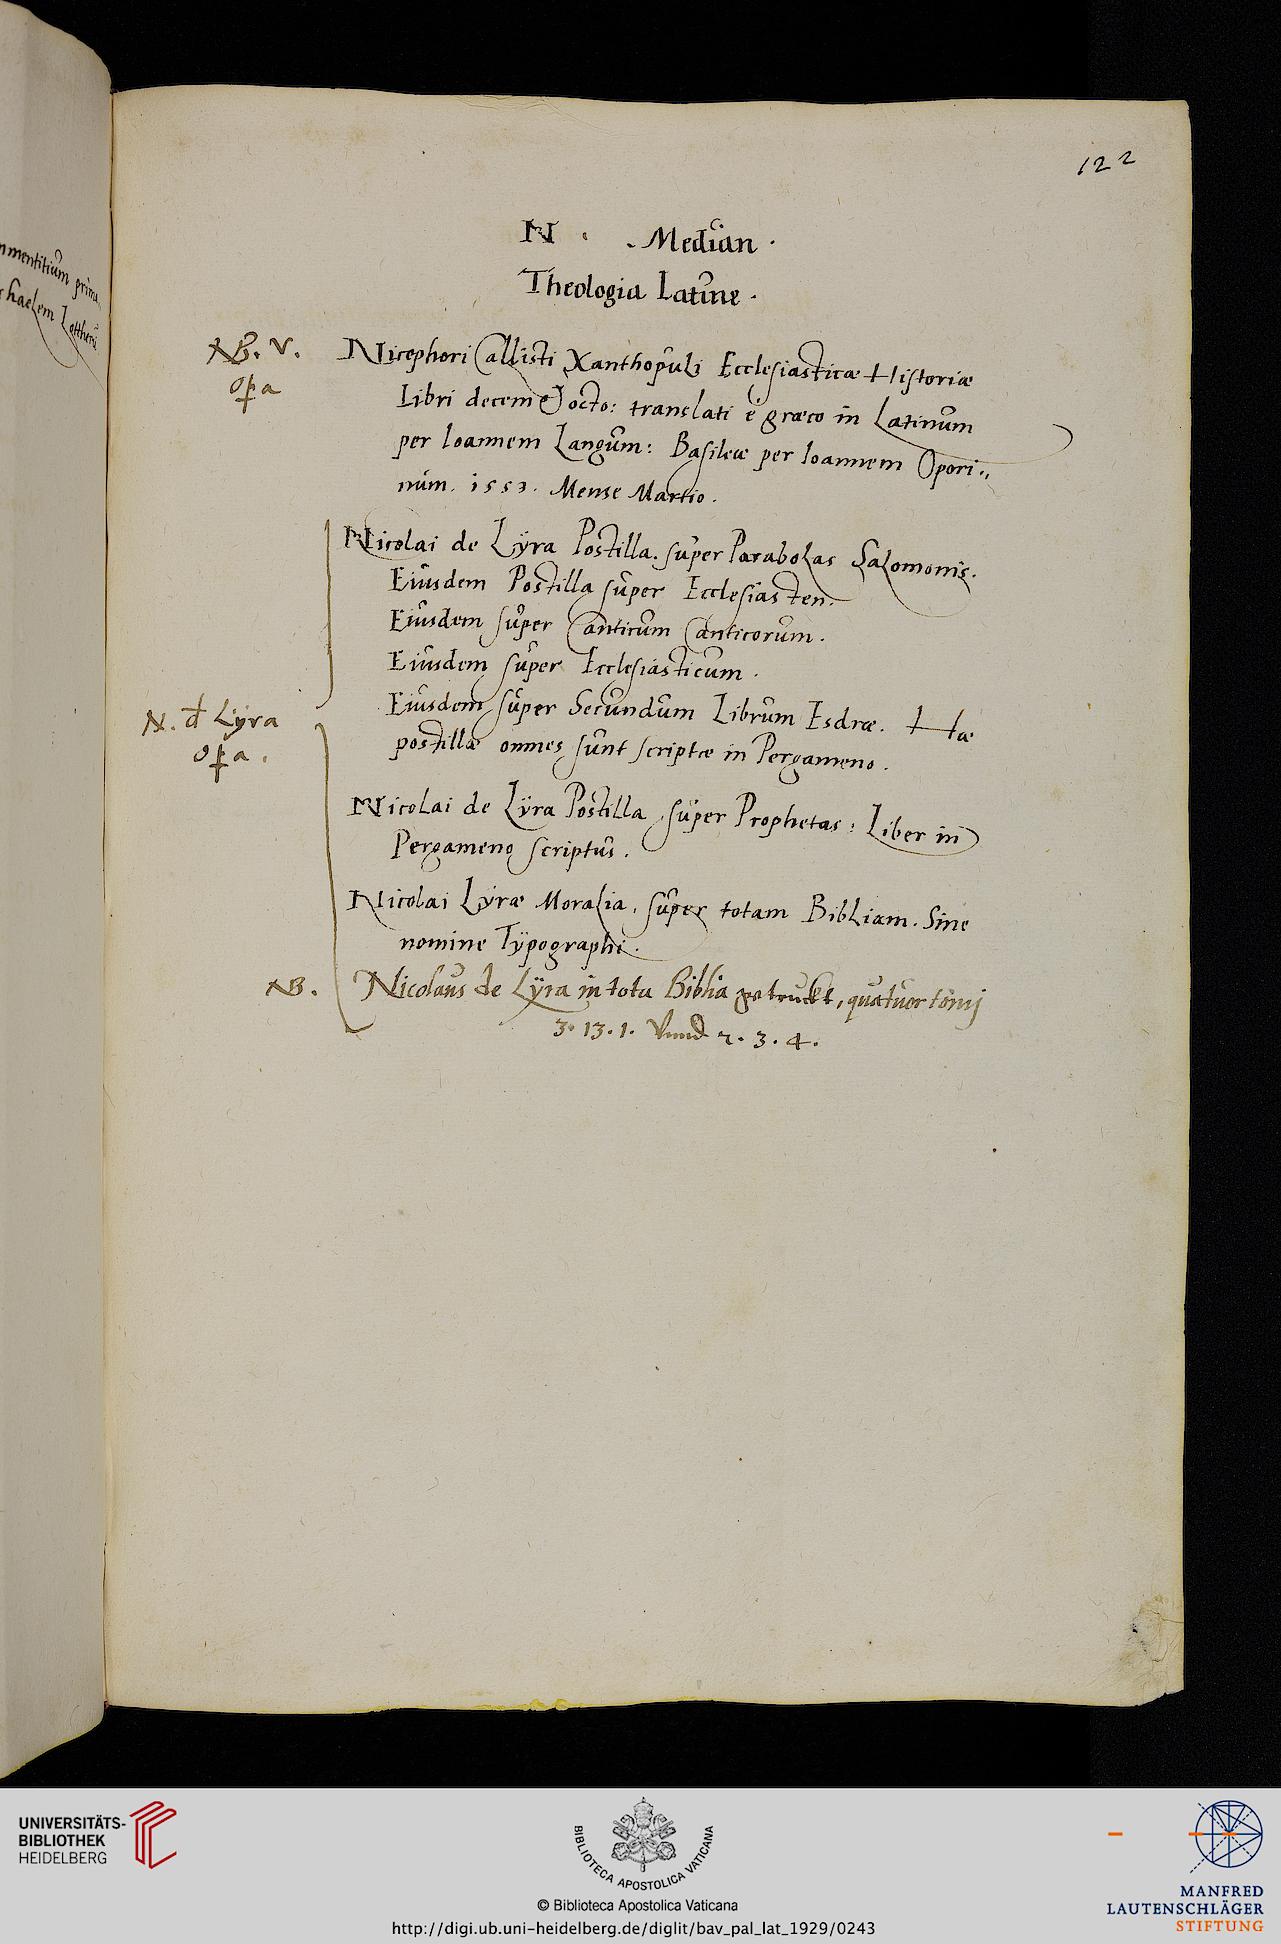 122
N. Median.
Theologia Latine.
NB. V.
opa
Nicephori Callisti Xanthopuli Ecclesiasticæ Historiæ
Libri decem & octo: translati è græco in Latinum
per Ioannem Langum: Basileæ per Ioannem Opori-
num. 1553. Mense Martio.
Nicolai de Lÿra Postilla super Parabolas Salomonis.
Eiusdem Postilla super Ecclesiasten.
Eiusdem super Canticum Canticorum.
Eiusdem super Ecclesiasticum.
N. d Lÿra
opa.
Eiusdem super Secundum Librum Esdræ. Hæ
postillæ omnes sunt scriptæ in Pergameno.
Nicolai de Lÿra Postilla super Prophetas: Liber in
Pergameno scriptus.
Nicolai Lyræ Moralia super totam Bibliam. Sine
nomine Tÿpographi.
NB. Nicolaus de Lÿra in tota Biblia getruckt, quatuor tomj
3. 13. 1. Vnnd 2. 3. 4.
mmentitium prima
chaelem Lottherū
UNIVERSITÄTS-
BIBLIOTHEK
HEIDELBERG
BIBLIOTECA APOSTOLICA VATICANA
© Biblioteca Apostolica Vaticana
http://digi.ub.uni-heidelberg.de/diglit/bav_pal_lat_1929/0243
MANFRED
LAUTENSCHLÄGER
STIFTUNG